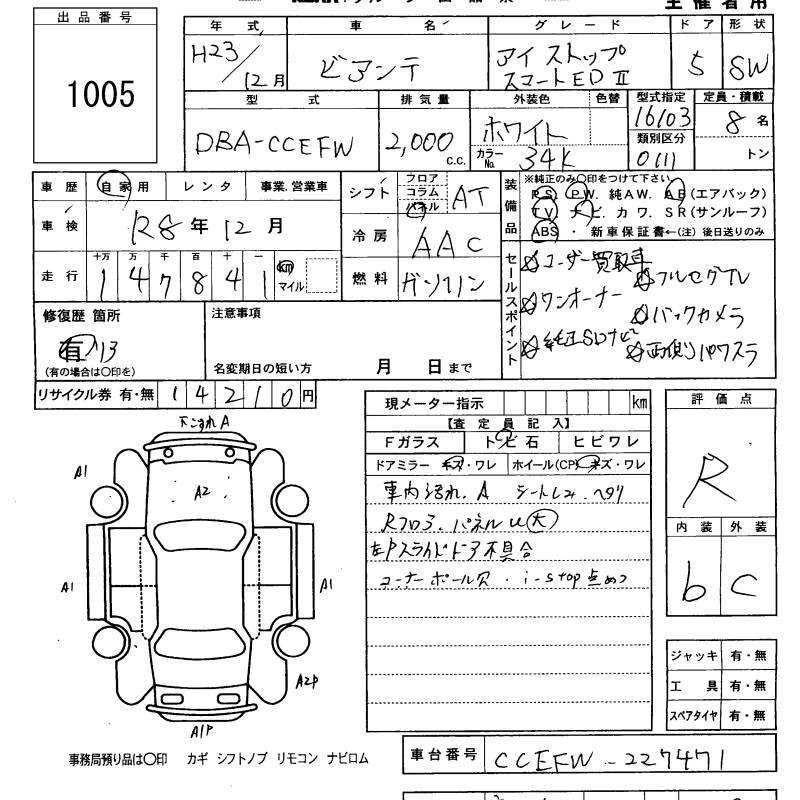 出品番号
1005
年式 車名 グレード ドア 形状
H23/12月 ビアンテ アイストップ スマートED II 5 SW
型式 排気量 外装色 色替 型式指定 定員・積載
DBA-CCEFW 2,000 c.c. ホワイト 16103 8名
カラーNo. 34K 類別区分 0111 トン
車歴 自家用 レンタ 事業.営業車 シフト フロア コラム パネル AT
車検 R8年12月 冷房 AAC
走行 十万 万 千 百 十 一 km マイル
1 4 7 8 4 1 燃料 ガソリン
装備品 ※純正のみ〇印をつけて下さい。
P.S. P.W. 純A.W. A.B(エアバック)
T.V ナビ. カワ. S.R(サンルーフ)
ABS ・ 新車保証書←(注)後日送りのみ
セールスポイント
ユーザー買取車
フルセグTV
ワンオーナー
バックカメラ
純正SDナビ
両側パワスラ
修復歴 箇所 注意事項
有 13
(有の場合は〇印を) 名変期日の短い方 月 日まで
リサイクル券 有・無 14210円
現メーター指示 km
【査定員記入】
Fガラス トビ石 ヒビワレ
ドアミラー キズ・ワレ ホイール(CP) キズ・ワレ
車内汚れ. A シートしみ. ヘタリ
Rフロア. パネルU大
左Pスライドドア不具合
コーナーポール穴. i-stop点めつ
評価点
R
内装 外装
b C
下こすれA
A1
A2
A1
A1
A2P
A1P
ジャッキ 有・無
工具 有・無
スペアタイヤ 有・無
事務局預り品は〇印 カギ シフトノブ リモコン ナビロム
車台番号 CCEFW-227471